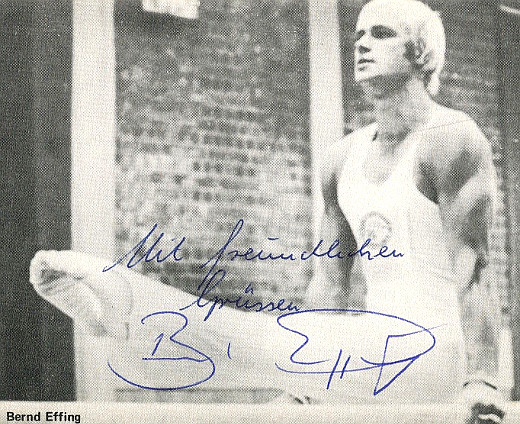 Mit freundlichen
Grüssen
B. Effing
Bernd Effing